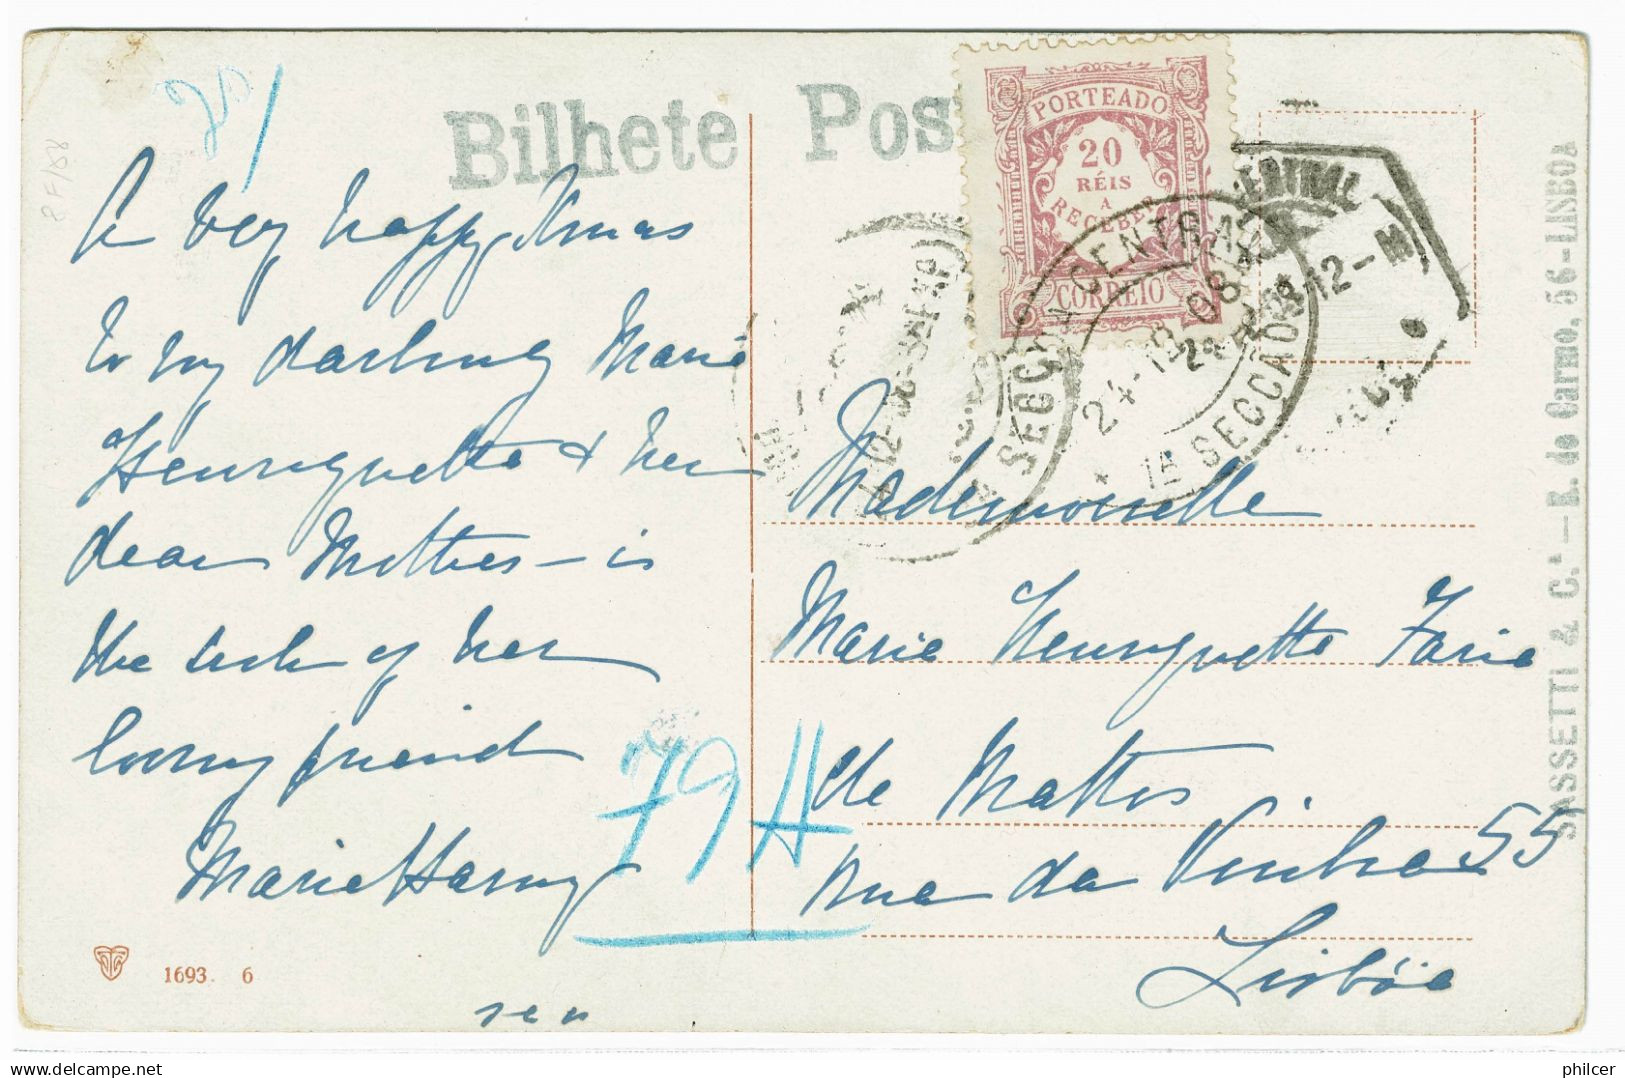 20
Bilhete Pos
PORTEADO
20
RÉIS
A
RECEBER
CORREIO
CENTRAL
1ª SECCÃO
24-12 08
12-M
A very happy Xmas
to my darling Marie
Henriquette & her
dear Mother - is
the wish of her
loving friend
Marie Harvey
79 A
Mademoiselle
Marie Henriquette Faria
de Mattos
Rua da Vinha 55
Lisbôa
SASSETTI & C.ª - R. do Carmo, 56 - LISBOA
1693. 6
philcer